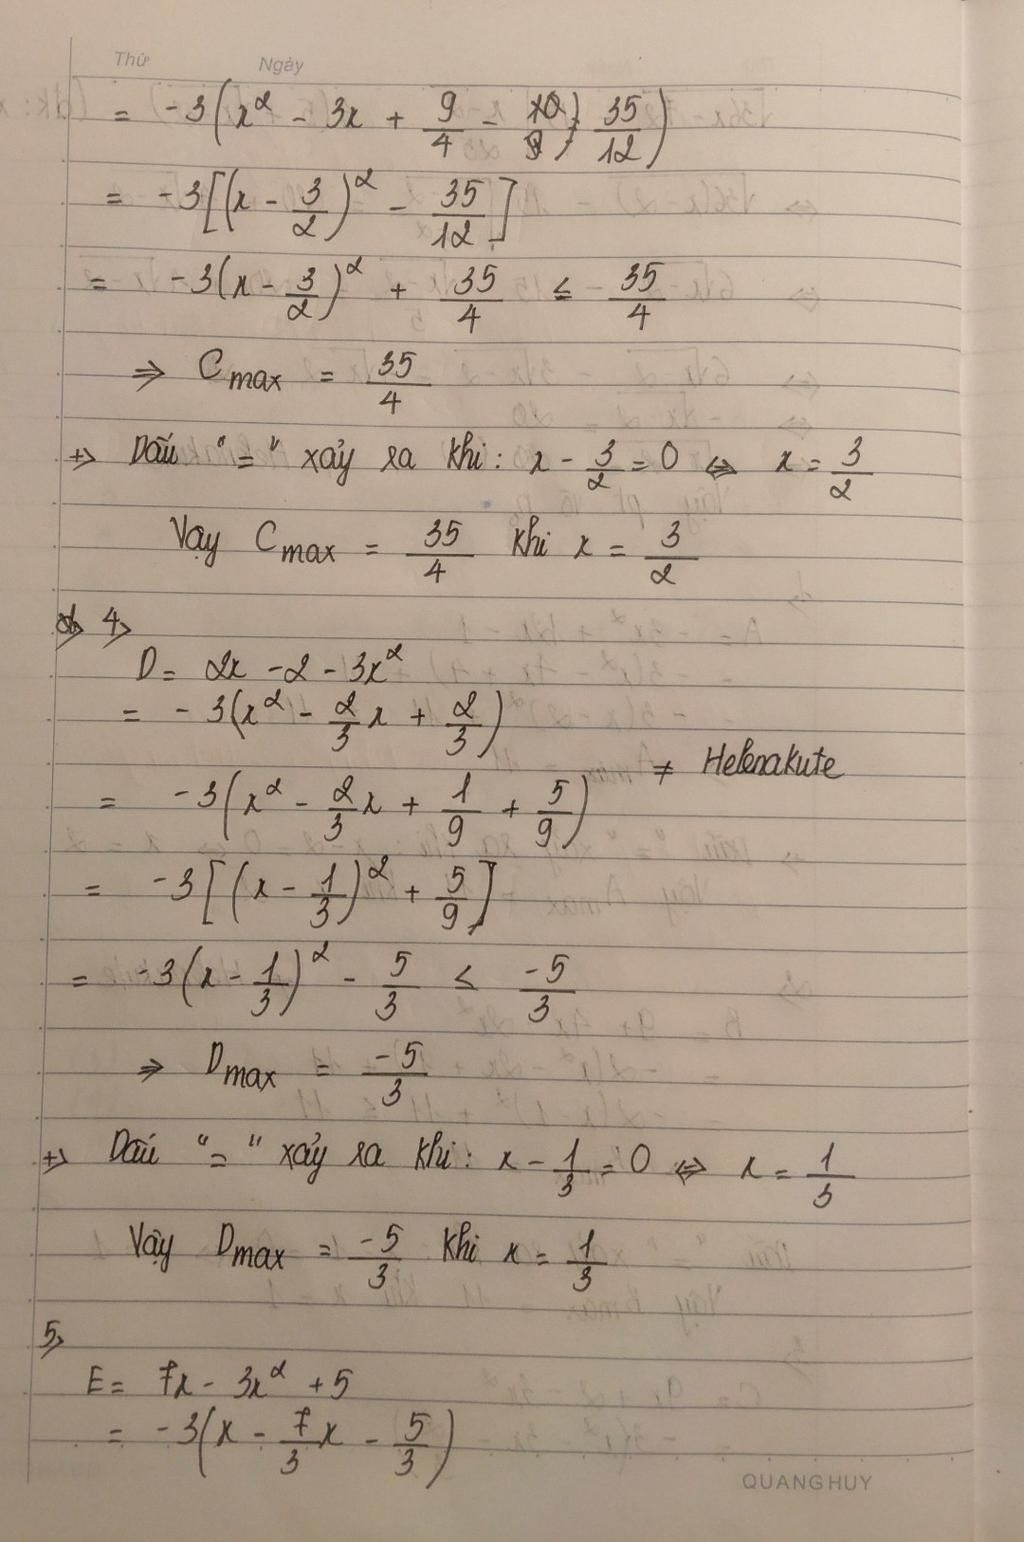 Thứ Ngày
= -3(x² - 3x + 9/4 - 35/12)
= -3[(x - 3/2)² - 35/12]
= -3(x - 3/2)² + 35/4 ≤ 35/4
⇒ Cmax = 35/4
+> Dấu "=" xảy ra khi: x - 3/2 = 0 ⇔ x = 3/2
Vậy Cmax = 35/4 khi x = 3/2
4>
D = 2x - 2 - 3x²
= -3(x² - 2/3x + 2/3)
≠ Helenakute
= -3(x² - 2/3x + 1/9 + 5/9)
= -3[(x - 1/3)² + 5/9]
= -3(x - 1/3)² - 5/3 ≤ -5/3
⇒ Dmax = -5/3
+> Dấu "=" xảy ra khi: x - 1/3 = 0 ⇔ x = 1/3
Vậy Dmax = -5/3 khi x = 1/3
5>
E = 7x - 3x² + 5
= -3(x - 7/3x - 5/3)
QUANG HUY